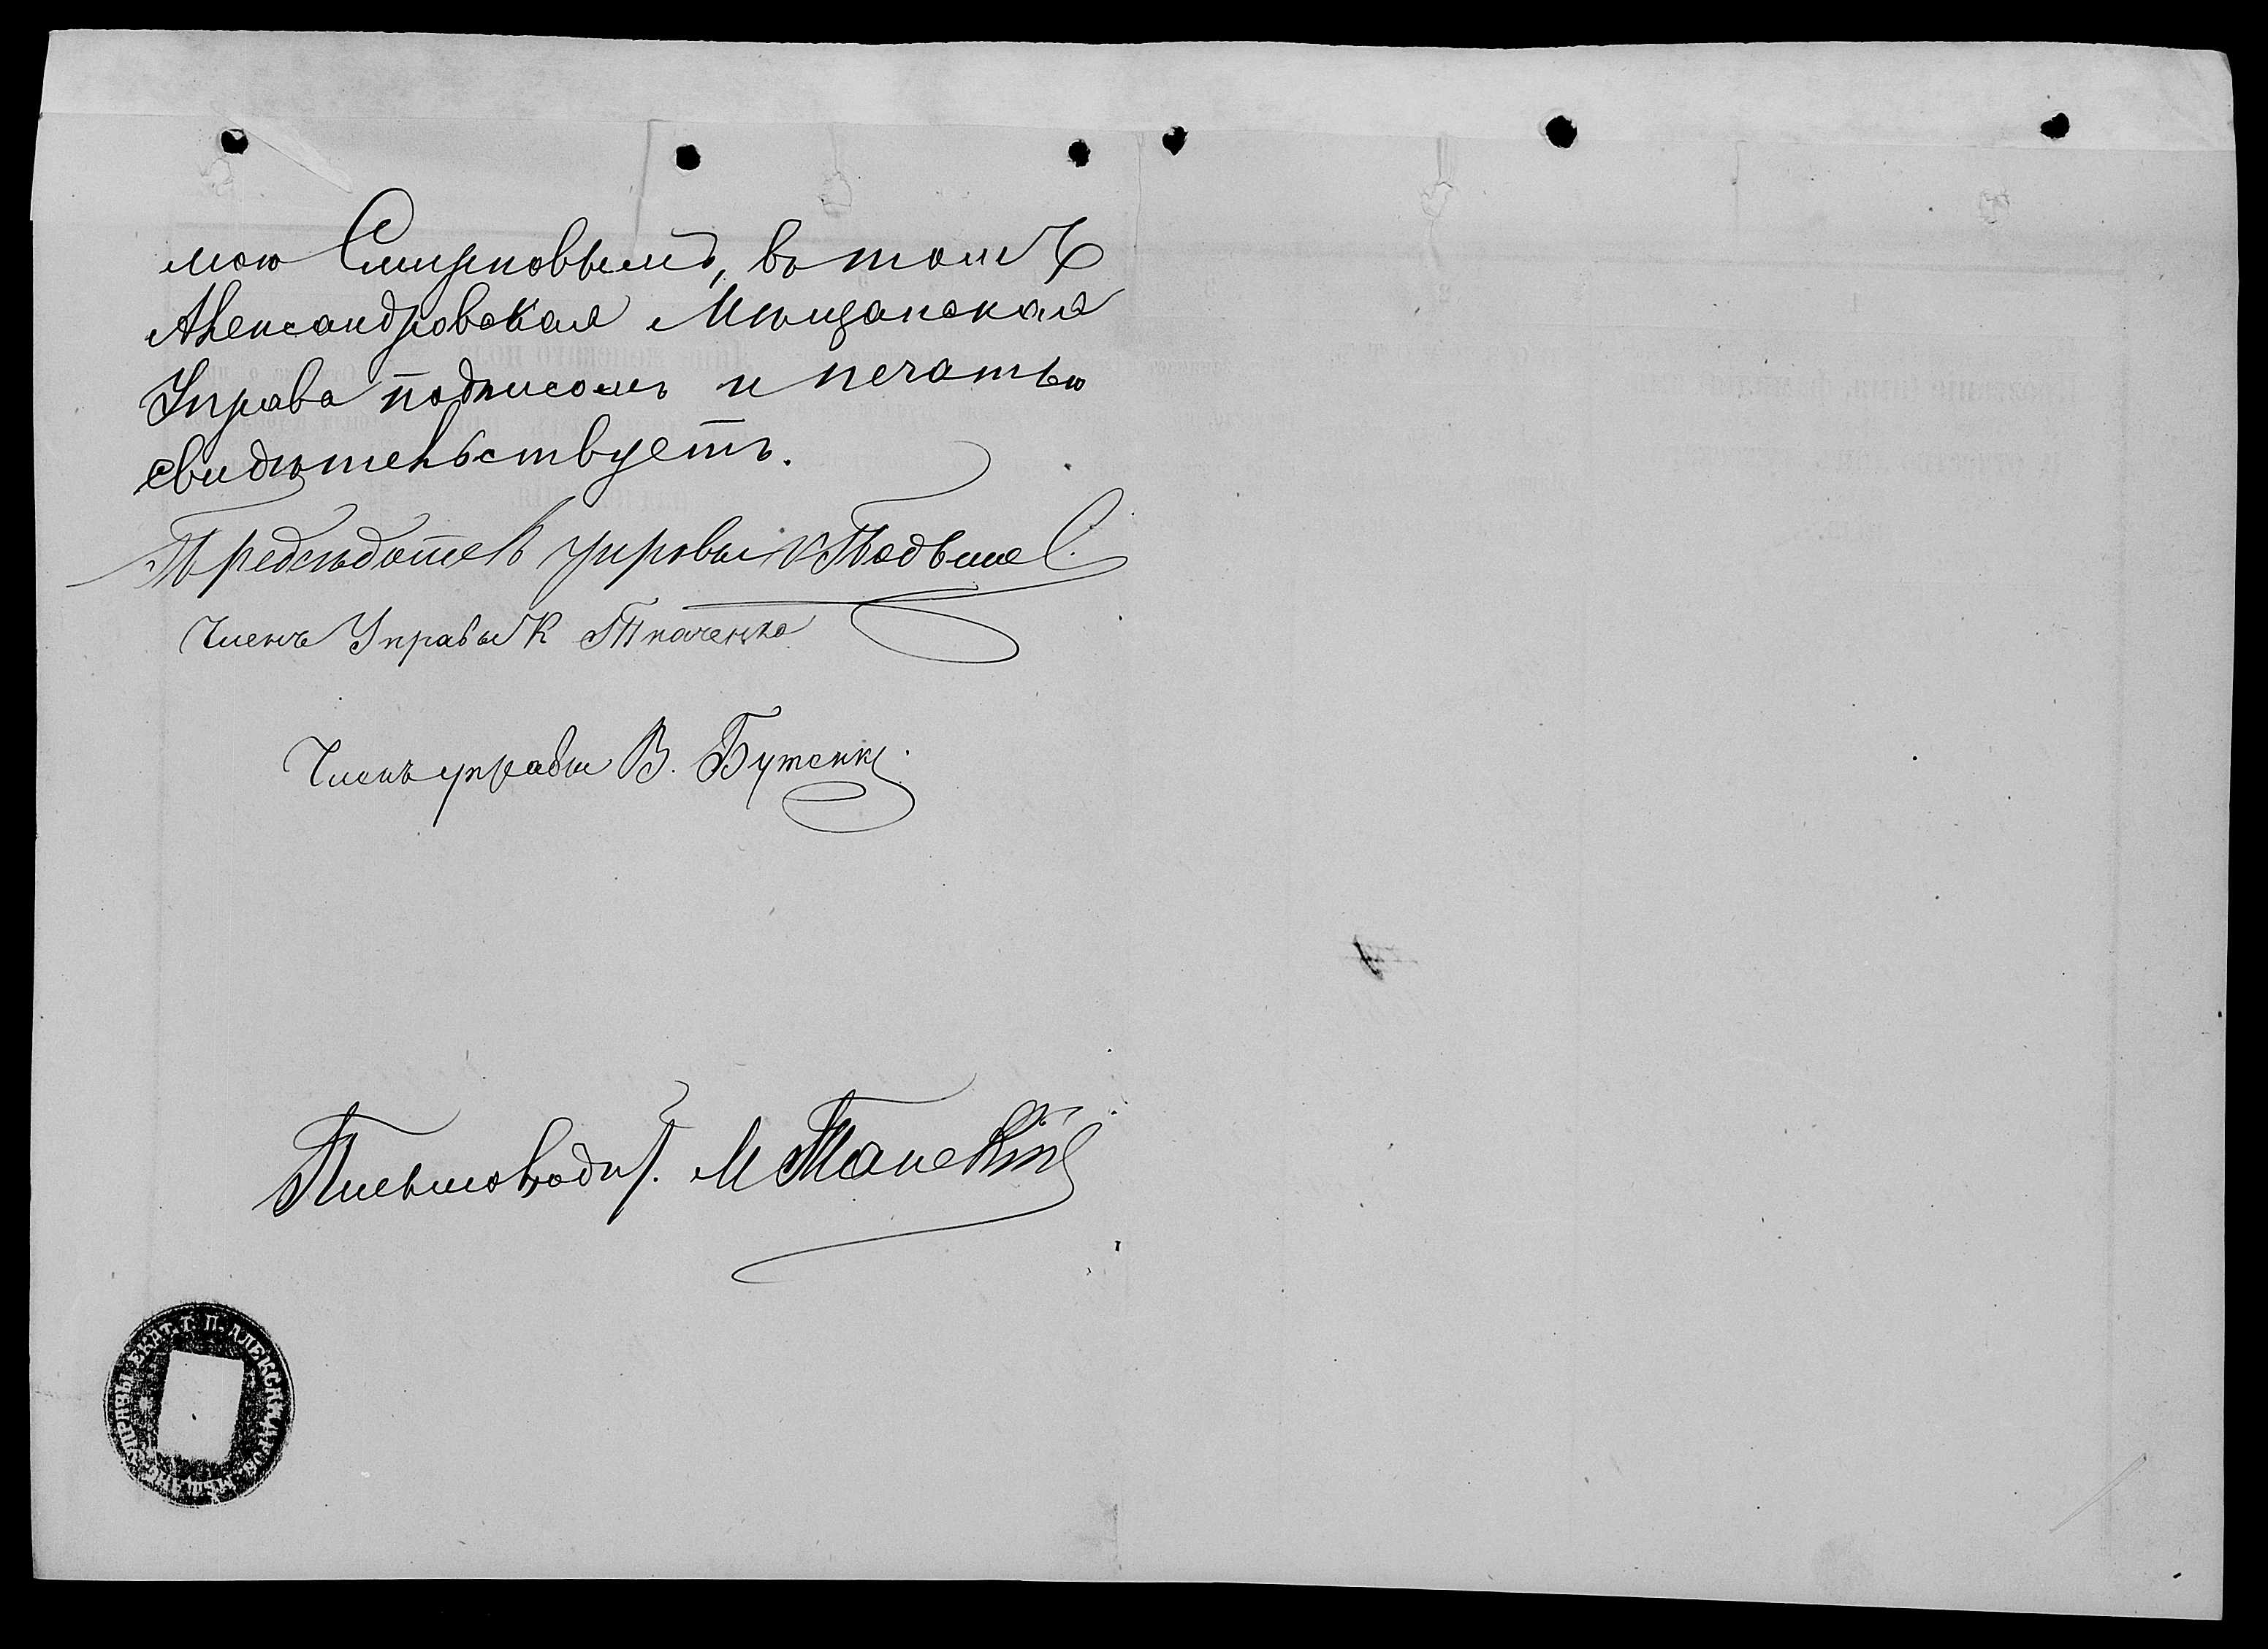 мою Смирновымъ, въ томъ
Александровская Мѣщанская
Управа подписомъ и печатью
свидѣтельствуетъ.
Предсѣдатель управы
Членъ Управы К Ткаченко
Членъ управы В. Бутенко
Письмовод. М
УПРАВЫ ЕКАТ. Г. П. АЛЕКСАНДРОВ. МѢЩАНС.